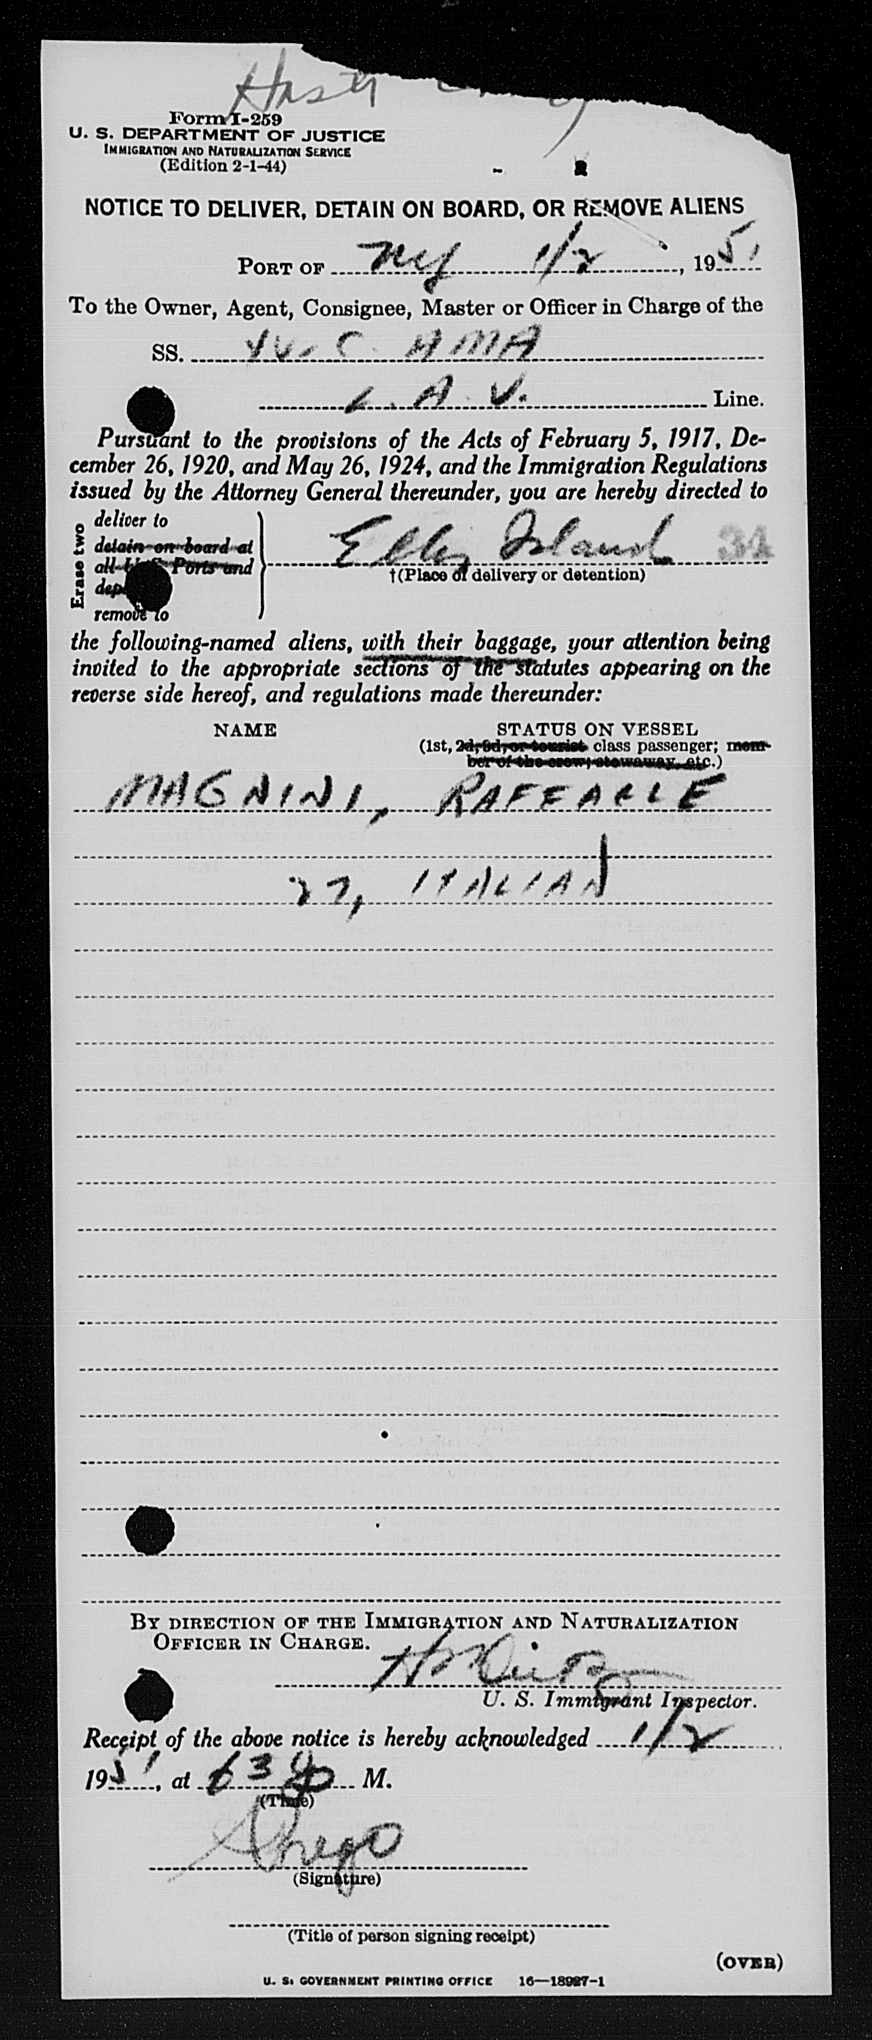 Form I-259
U. S. DEPARTMENT OF JUSTICE
IMMIGRATION AND NATURALIZATION SERVICE
(Edition 2-1-44)
NOTICE TO DELIVER, DETAIN ON BOARD, OR REMOVE ALIENS
PORT OF NY 1/2, 1951
To the Owner, Agent, Consignee, Master or Officer in Charge of the
SS. AMA
L. A. V. Line.
Pursuant to the provisions of the Acts of February 5, 1917, De-
cember 26, 1920, and May 26, 1924, and the Immigration Regulations
issued by the Attorney General thereunder, you are hereby directed to
Erase two
deliver to
detain on board at
all U. S. Ports and
remove to
Ellis Island 34
†(Place of delivery or detention)
the following-named aliens, with their baggage, your attention being
invited to the appropriate sections of the statutes appearing on the
reverse side hereof, and regulations made thereunder:
NAME STATUS ON VESSEL
(1st, 2d, 3d, or tourist class passenger; mem-
ber of the crew; stowaway, etc.)
MAGNINI, RAFFAELE
27, ITALIAN
BY DIRECTION OF THE IMMIGRATION AND NATURALIZATION
OFFICER IN CHARGE.
U. S. Immigrant Inspector.
Receipt of the above notice is hereby acknowledged 1/2
1951, at 630 P M.
(Time)
(Signature)
(Title of person signing receipt)
(OVER)
U. S. GOVERNMENT PRINTING OFFICE 16—18927-1